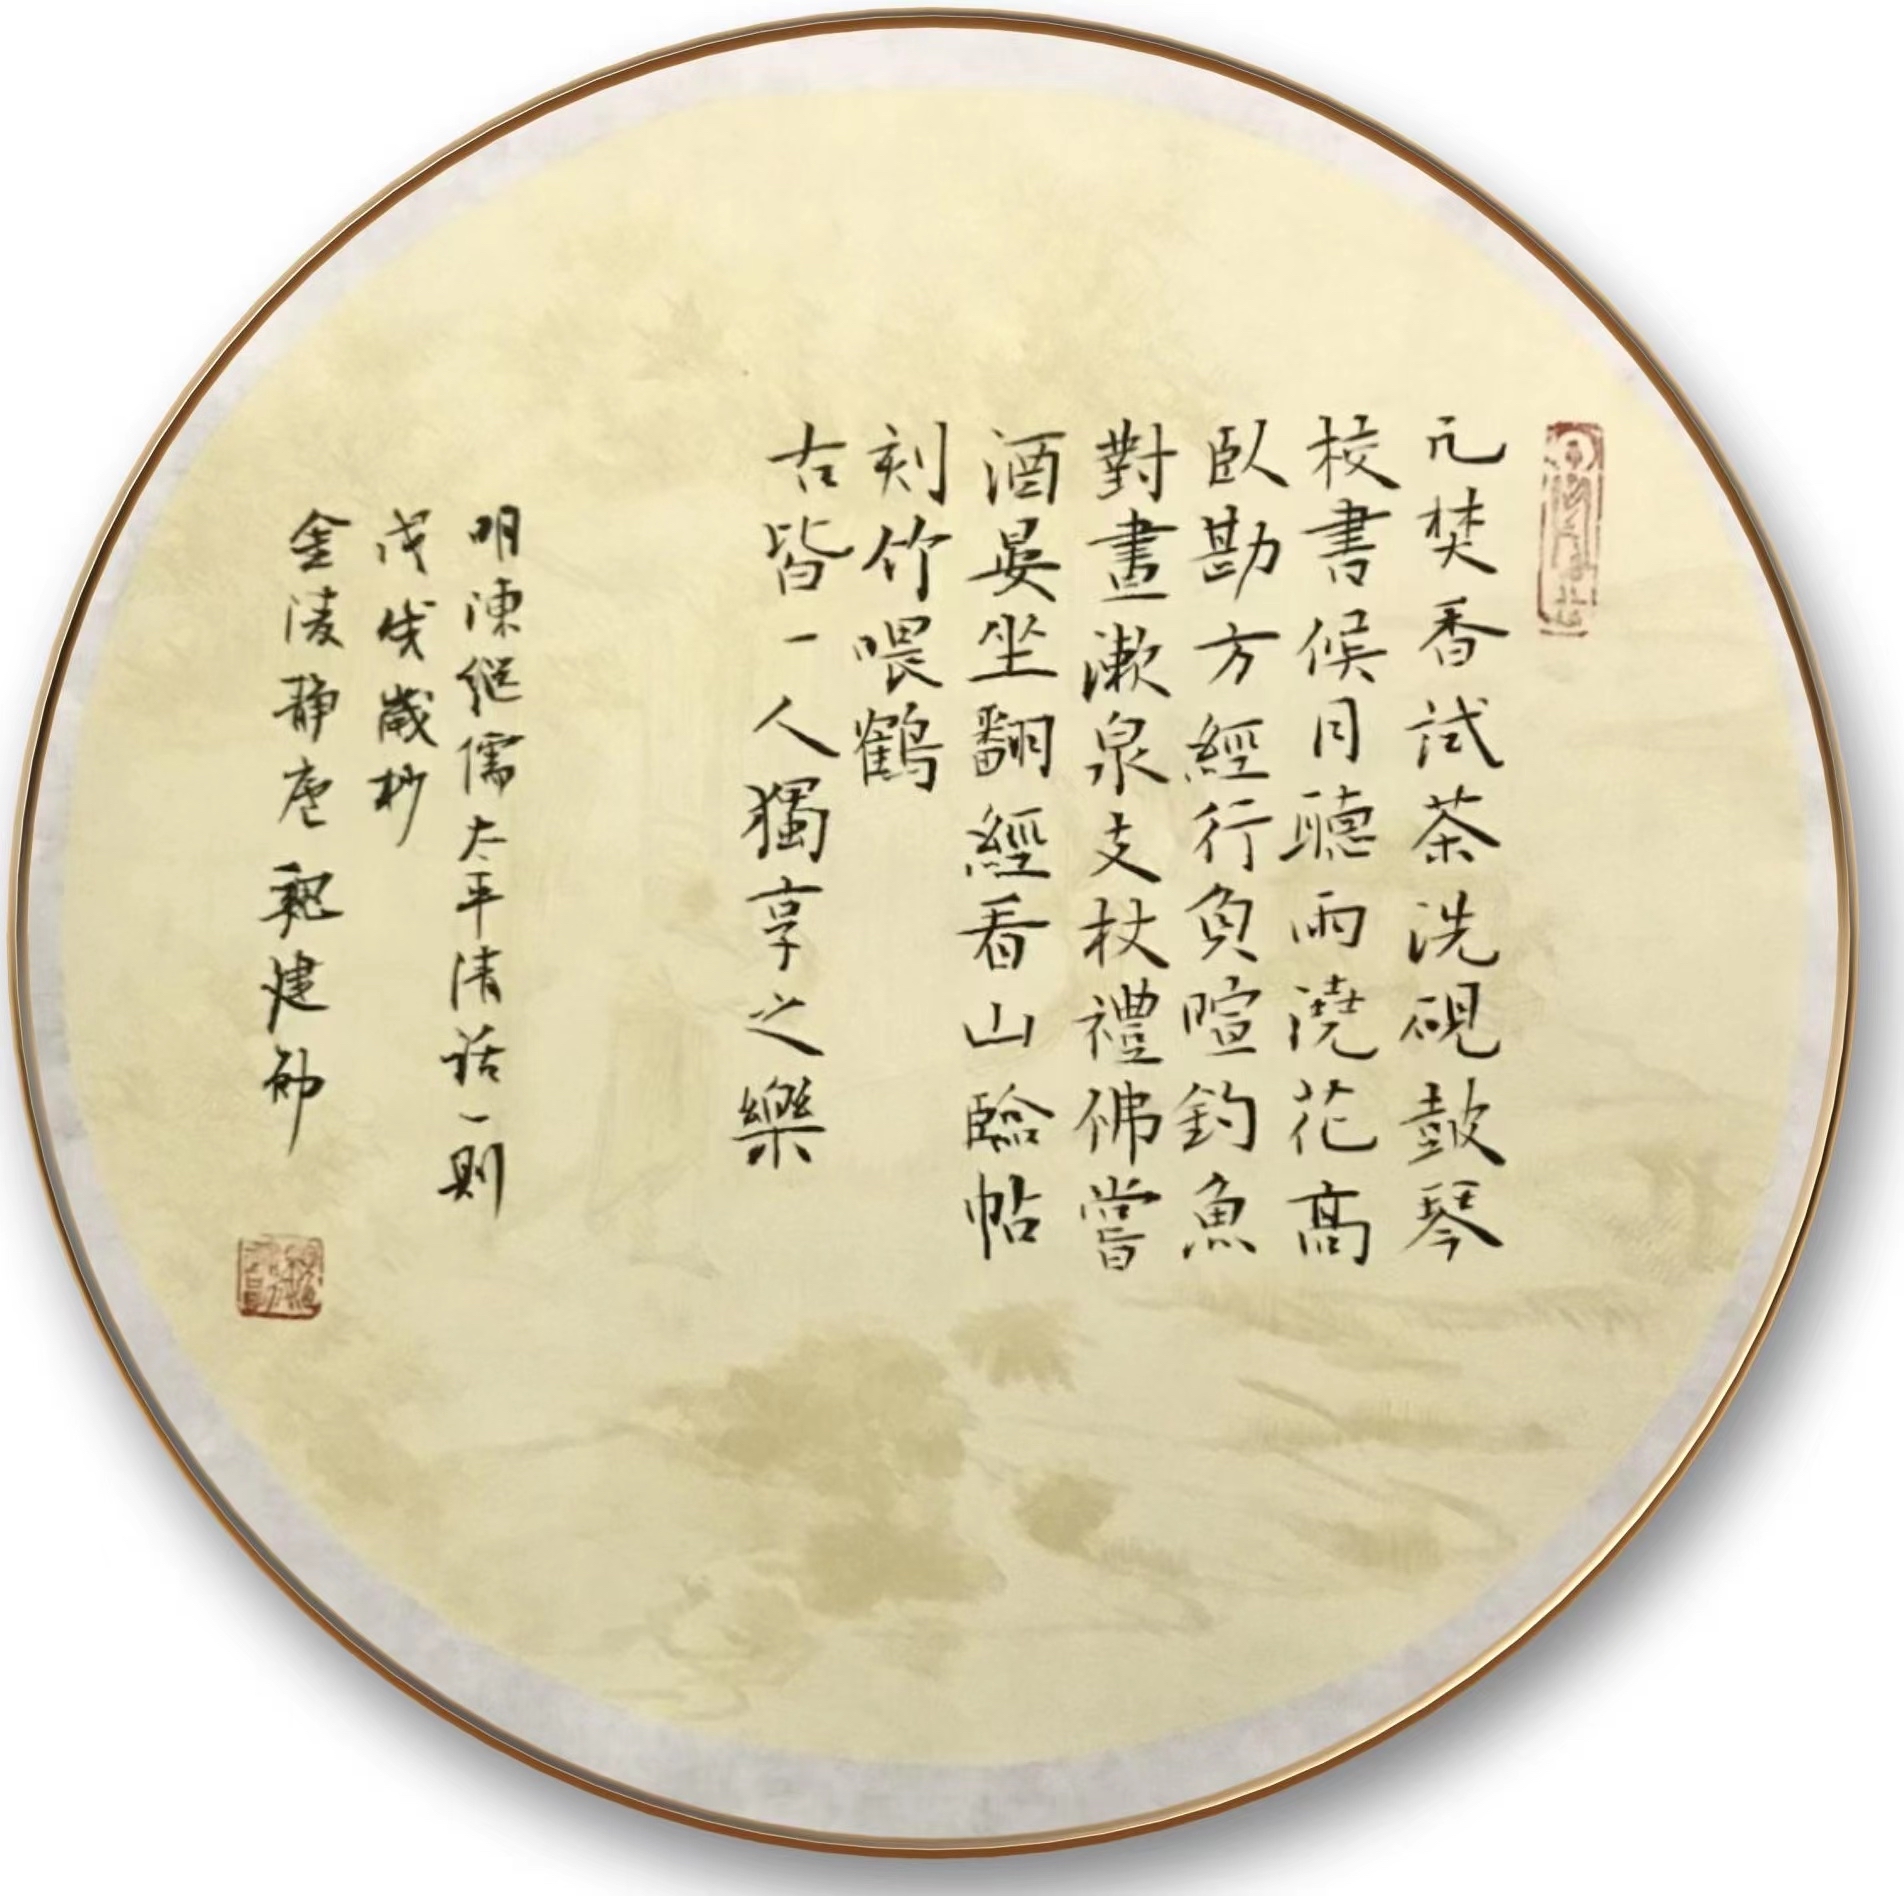 凢焚香試茶洗硯鼓琴
校書候月聽雨澆花高
臥勘方經行負暄釣魚
對畫漱泉支杖禮佛嘗
酒晏坐翻經看山臨帖
刻竹喂鶴
右皆一人獨享之樂
明陳繼儒太平清話一則
戊戌歲杪
金陵静庵 魏建勋